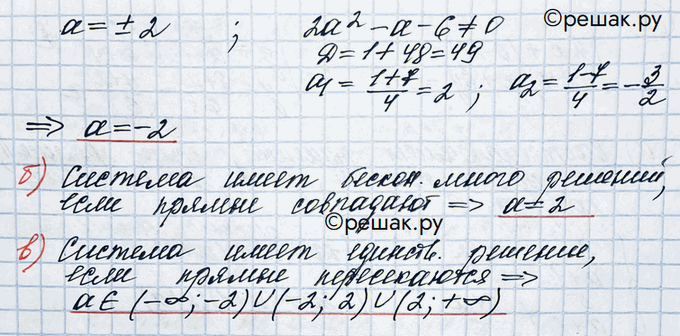 ©решак.ру
a = ± 2 ; 2a² - a - 6 ≠ 0
D = 1 + 48 = 49
a₁ = (1+7)/4 = 2 ; a₂ = (1-7)/4 = -3/2
=> a = -2
б) Система имеет бескон. много решений,
если прямые совпадают => a = 2
©решак.ру
в) Система имеет единств. решение,
если прямые пересекаются =>
a ∈ (-∞; -2) ∪ (-2; 2) ∪ (2; +∞)